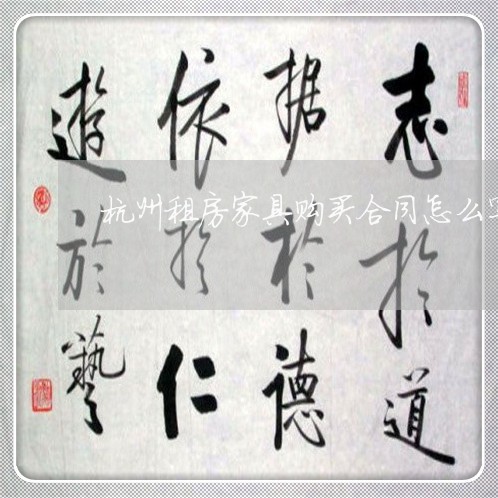 志於道
据於德
依於仁
遊於藝
杭州租房家具购买合同怎么